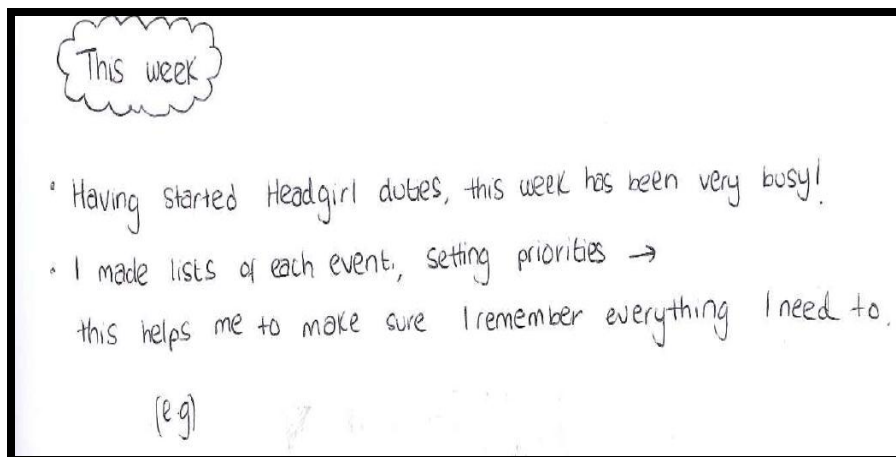 This week
• Having started Headgirl duties, this week has been very busy!
• I made lists of each event, setting priorities →
this helps me to make sure I remember everything I need to.
(e.g)